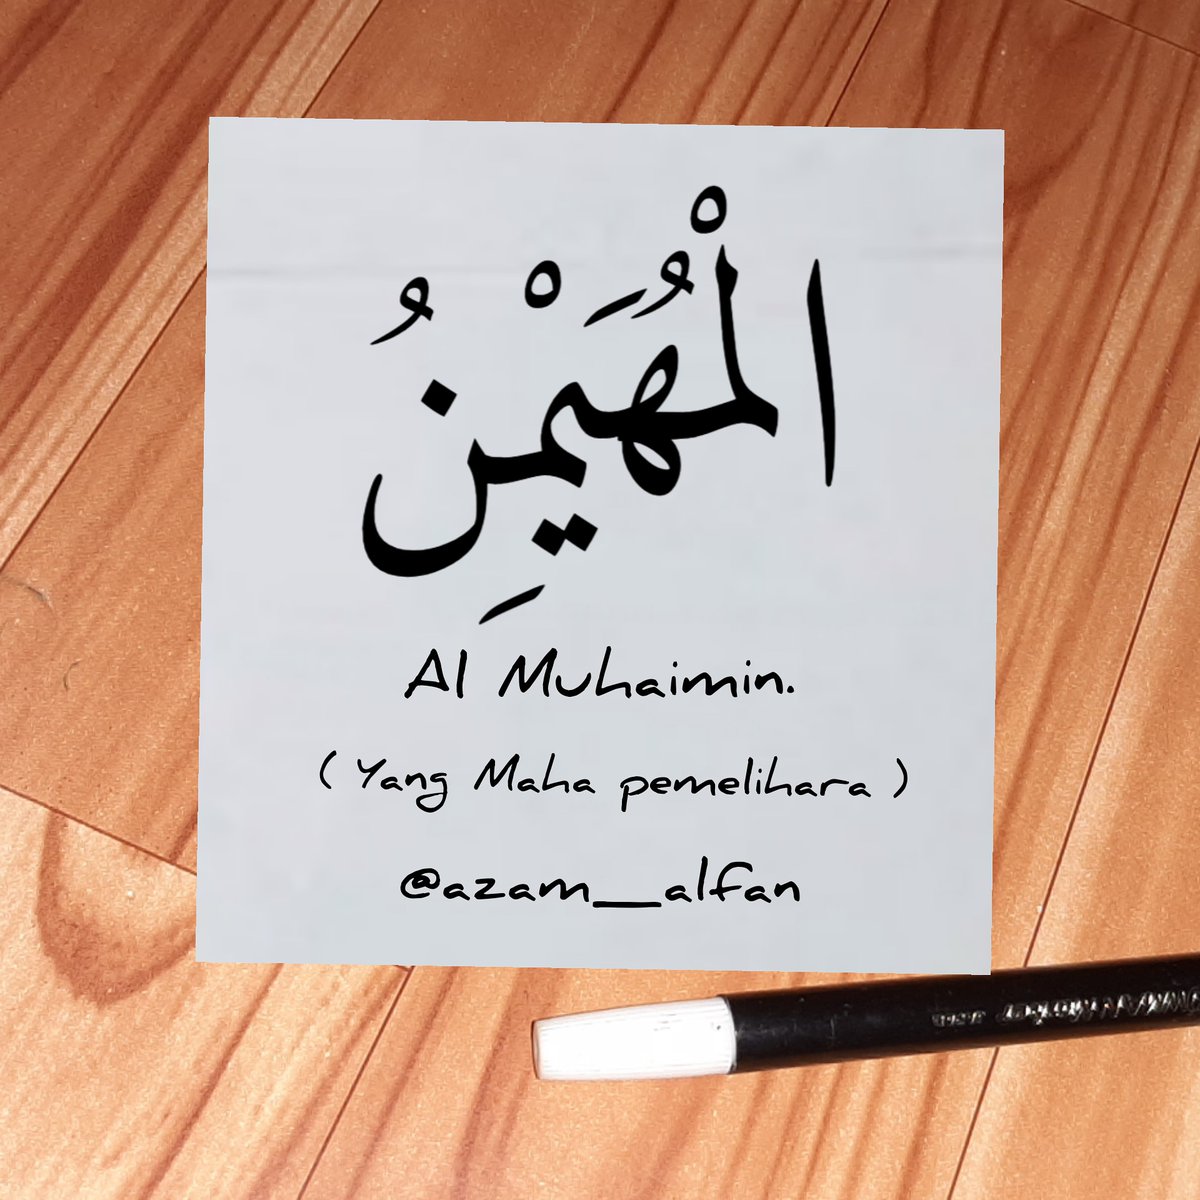 الْمُهَيْمِنُ
Al Muhaimin.
( Yang Maha pemelihara )
@azam__alfan